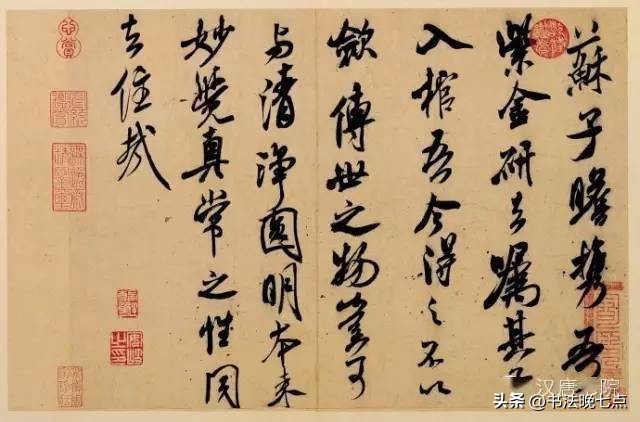 蘇子瞻攜吾
紫金研去囑其子
入棺吾今得之不以
斂傳世之物豈可
与清淨圓明本來
妙覺真常之性同
去住哉
汉唐 院
头条 @书法晚七点